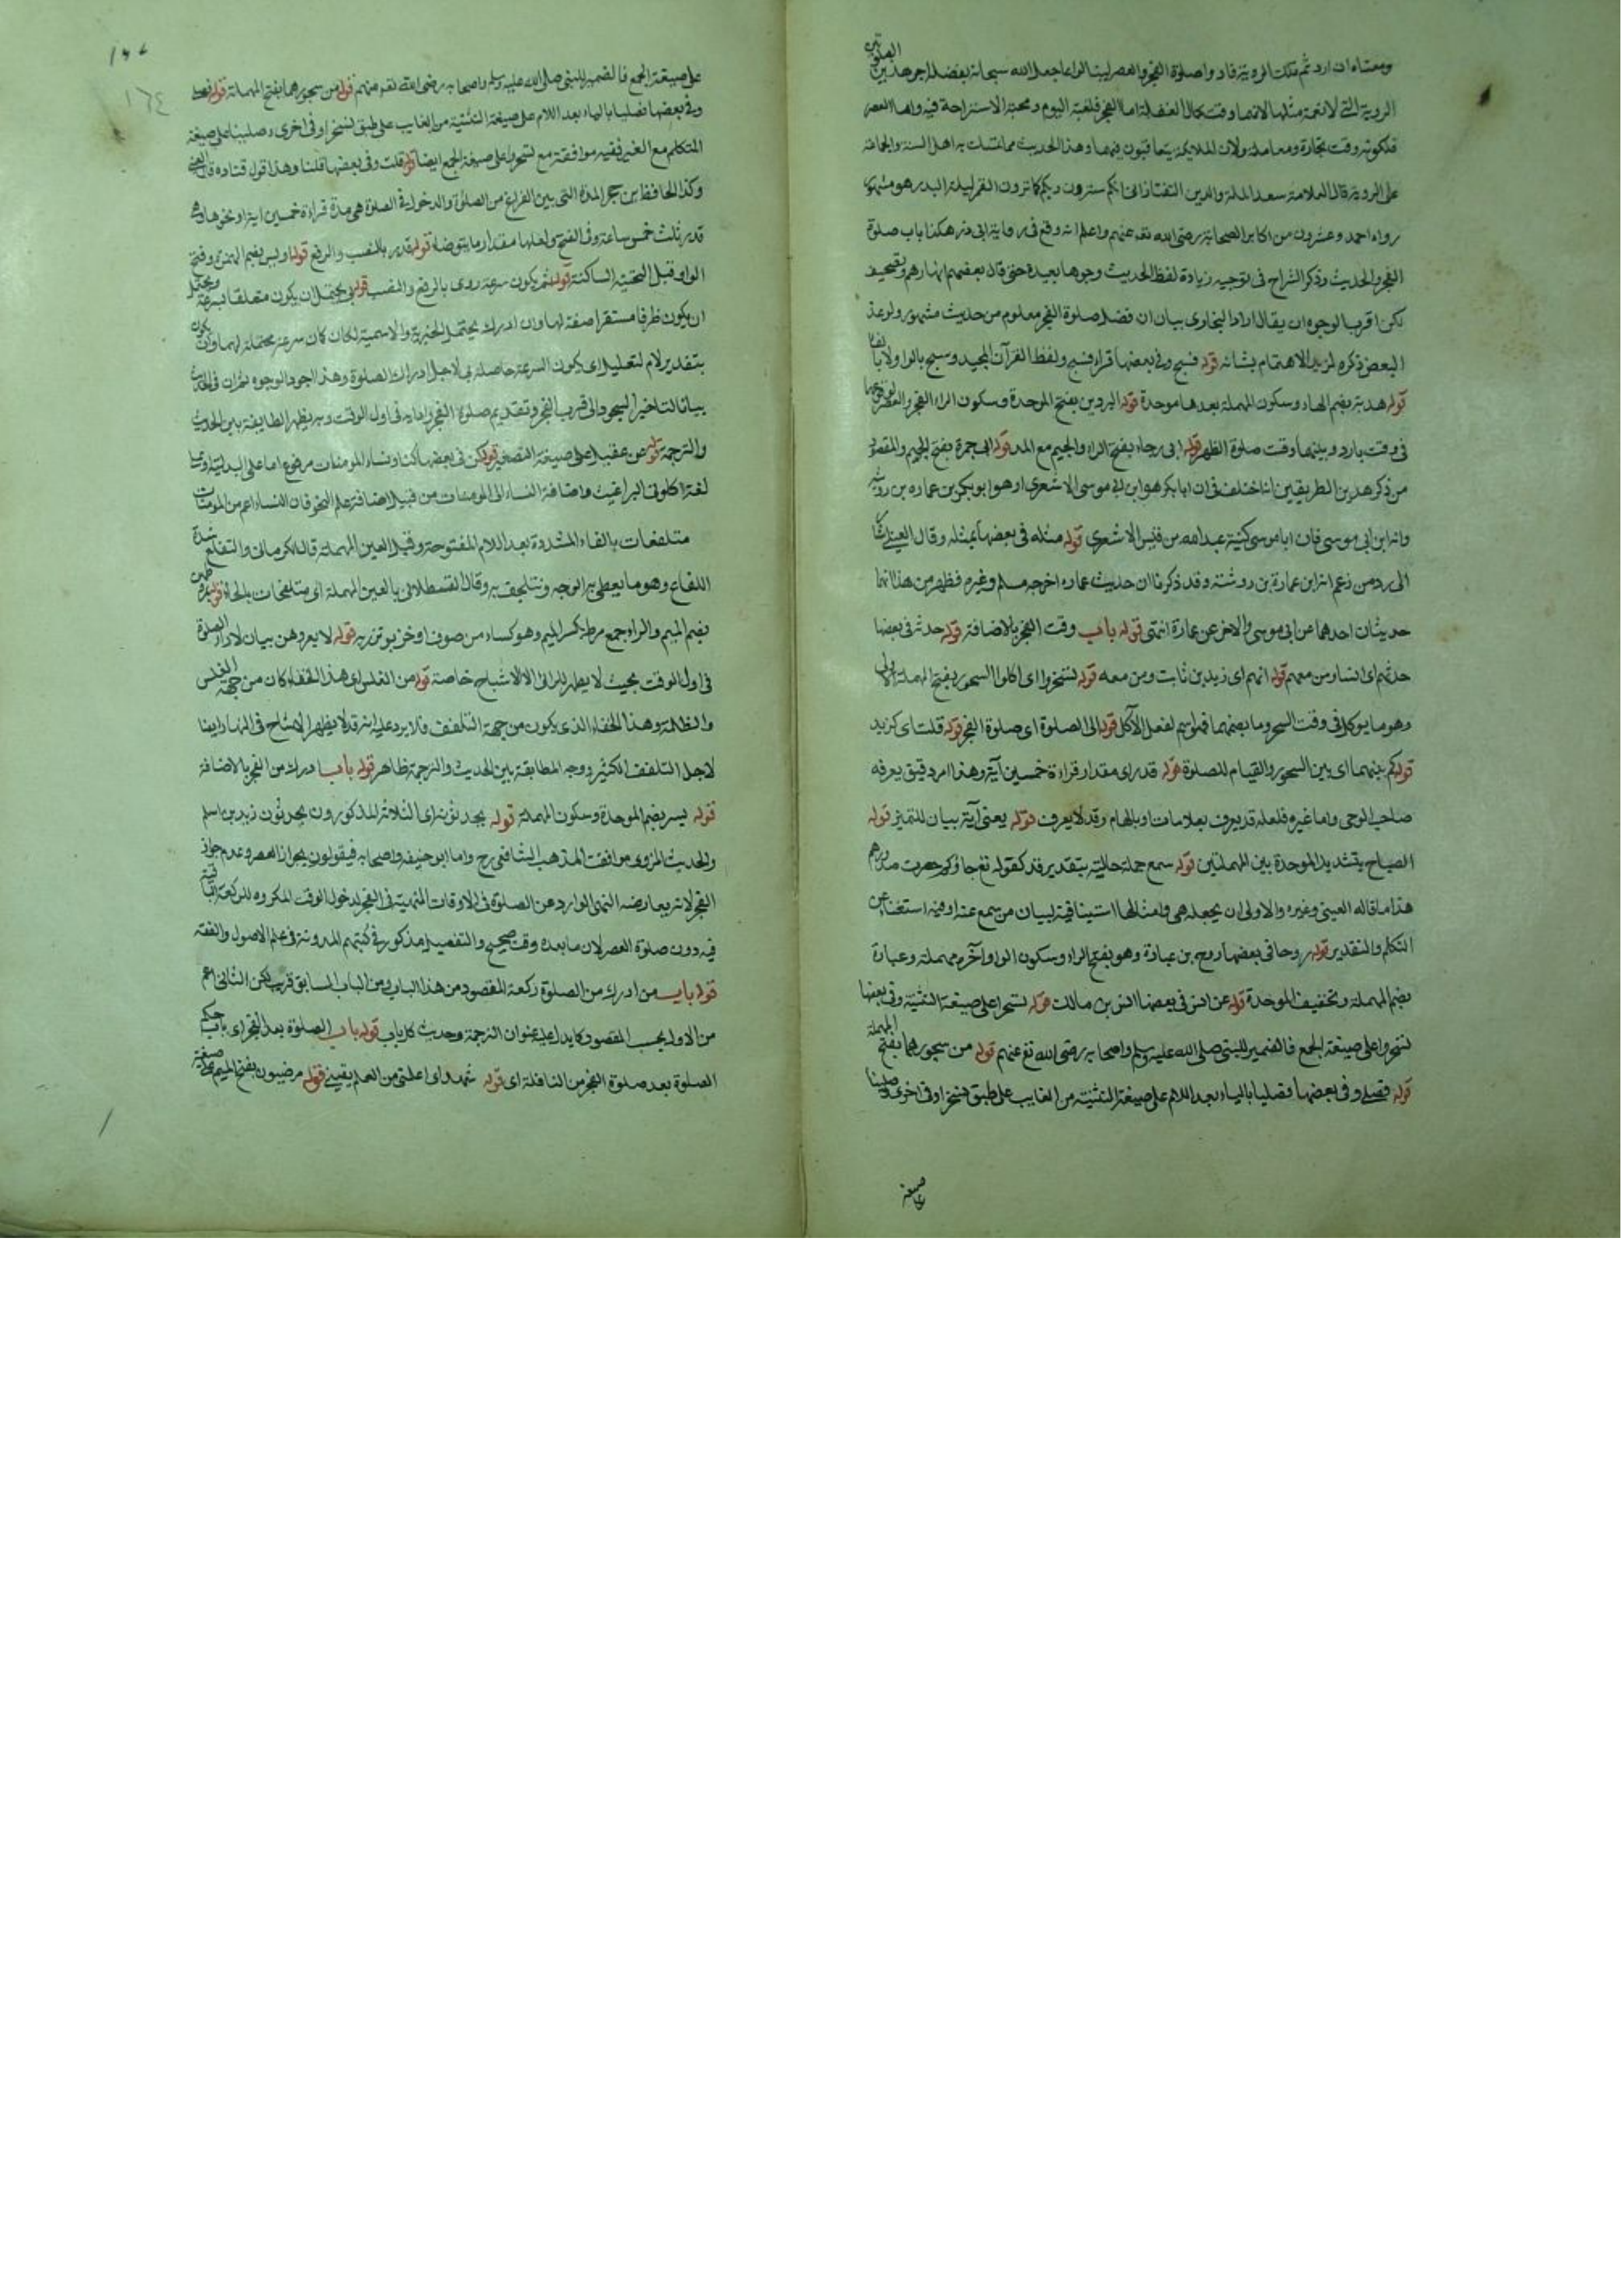 ومعناه ان اردتم تلك الروية فادوا صلوة الفجر والعصر لينا لوا ما جعل الله سبحانه بفضله اجر هذين الصلوتين
الروية التي لا نعمة مثلها لانهما وقت كمال الغفلة اما الفجر فلغبة اليوم ومحبة الاستراحة فيه واما العصر
فلكونه وقت تجارة ومعاملة ولان الملايكة يتعاقبون فيهما وهذا الحديث مما تمسك به اهل السنة والجماعة
على الروية قال العلامة سعد الملة والدين التفتازانى انكم سترون ربكم كما ترون القمر ليلة البدر هو مشهور
رواه احمد وعشرون من اكابر الصحابة رضى الله تعه عنهم واعلم انه وقع فى رواية ابى ذر هكذا باب صلوة
الفجر والحديث وذكر الشراح فى توجيه زيادة لفظ الحديث وجوها بعيدة حتى قال بعضهم انها وهم وتصحيف
لكن اقرب الوجوه ان يقال اراد البخارى بيان ان فضل صلوة الفجر معلوم من حديث مشهور ولو عند
البعض ذكره لمزيد الاهتمام بشانه قوله فسبح وفى بعضها قراء فسبح ولفظ القرآن المجيد وسبح بالواو لا بالفاء
قوله هدبة بضم الهاء وسكون المهملة بعدها موحدة قوله البردين بفتح الموحدة وسكون الراء الفجر والعصر لوقوعهما
فى وقت بارد وبينهما وقت صلوة الظهر قوله ابى رجاء بفتح الراء والجيم مع المد قوله ابى جمرة بفتح الجيم والمقصود
من ذكر هذين الطريقين انا اختلف فى ان ابا بكر هو ابن ابى موسى الاشعرى او هو ابو بكر بن عماره بن روثبة
وانه ابن ابى موسى فان ابا موسى كنية عبد الله من قيس الاشعرى قوله مثله فى بعضها بمثله وقال العينى اشارة
الى رد من زعم انه ابن عمارة بن روشته وقد ذكرنا ان حديث عماره اخرجه مسلم وغيره فظهر من هذا انهما
حديثان احدهما عن ابى موسى والاخر عن عمارة انتهى قوله باب وقت الفجر بالاضافة قوله حدثه فى بعضها
حدثهم اى انسا ومن معهم قوله انهم اى زيد بن ثابت ومن معه قوله تسحروا اى اكلوا السحور بفتح المهملة الاولى
وهو ما يوكل فى وقت السحر وما بضمها فهو اسم لفعل الاكل قوله الى الصلوة اى صلوة الفجر قوله قلت اى كزيد
قوله كم بينهما اى بين السحور والقيام للصلوة قوله قدر اى مقدار قراءة خمسين آية وهذا امر دقيق يعرفه
صاحب الوحى واما غيره فلعله قد يعرف بعلامات او بالهام وقد لا يعرف قوله يعنى آية بيان للتميز قوله
الصباح بتشديد الموحدة بين المهملتين قوله سمع جملة حالية بتقدير قد كقوله تع جاؤكم حصرت صدورهم
هذا ما قاله العينى وغيره والاولى ان يجعله هى وامثالها استينافية لبيان من سمع عنه او فيه استغناء عن
التكلم والتقدير قوله روحا فى بعضها روح بن عبادة وهو بفتح الراء وسكون الواو آخره مهملة وعبادة
بضم المهملة وتخفيف الموحدة قوله عن انس فى بعضها انس بن مالك قوله تسحرا على صيغة التثنية وفى بعضها
تسحروا على صيغة الجمع فالضمير للنبى صلى الله عليه وسلم واصحابه رضى الله تع عنهم قوله من سحورهما بفتح المهملة
قوله فصلى وفى بعضها فصليا بالياء بعد اللام على صيغة التثنية من الغايب على طبق تسحرا وفى اخرى وصلينا
على صيغة
على صيغة الجمع فالضمير للنبى صلى الله عليه وسلم واصحابه رضى الله تعه عنهم قوله من سحورهما بفتح المهملة قوله فصلى
وفى بعضها فصليا بالياء بعد اللام على صيغة التثنية من الغايب على طبق تسحرا وفى اخرى وصلينا على صيغة
المتكلم مع الغير ففيه موافقة مع تسحروا على صيغة الجمع ايضا قوله قلت وفى بعضها قلنا وهذا قول قتاده قال العينى
وكذا الحافظ بن حجر المدة التى بين الفراغ من السحور والدخول فى الصلوة هى مدة قراءة خمسين اية او نحوها وهى
قدر ثلث خمس ساعة وفى الفتح ولعلها مقدار ما يتوضاء قوله قدر بالنصب والرفع قوله اويس بضم الهمزة وفتح
الواو قبل التحتية الساكنة قوله ثم يكون سرعة روى بالرفع والنصب قوله بى يحتمل ان يكون متعلقا بسرعة ويحتمل
ان يكون ظرفا مستقرا صفة لها وان ادرك يحتمل الخبرية والاسمية لكان كان سرعة محتملة لهما وان يكون
بتقدير لام لتعليل اى يكون السرعة حاصلة بى لاجل ادراك الصلوة وهذا اجود الوجوه ثم ان فى الحديث
بيانا لتاخير السحور الى قرب الفجر وتقديم صلوة الفجر واداءه فى اول الوقت وبه يظهر المطابقة بين الحديث
والترجمة قوله عن عقيل على صيغة التصغير قوله كن فى بعضها كنا ونساء المومنات مرفوع اما على البدلية او على
لغة اكلونى البراغيث واضافة النساء الى المومنات من قبيل اضافة علم النحو فان النساء اعم من المومنات
متلفعات بالفاء المشددة بعد اللام المفتوحة وقيل العين المهملة قال الكرمانى والتفلع شدة
اللفاع وهو ما يغطى به الوجه ونتلحف به وقال القسطلانى بالعين المهملة اى متلفحات بالحاء قوله بمروطهن
بضم الميم والراء جمع مرط بكسر الميم وهو كساء من صوف او خز يوتزر به قوله لا يعرفهن بيان لاداء الصلوة
فى اول الوقت بحيث لا يظهر للرائى الا الاشباح خاصة قوله من الغلس اى هذا الخفاء كان من جهة الغلس
والظلمة وهذا الخفاء الذى يكون من جهة التلفف فلا يرد عليه انه قد لا يظهر الاشباح فى النهار ايضا
لاجل التلفف الكثير ووجه المطابقة بين الحديث والترجمة ظاهر قوله باب ادرك من الفجر بالاضافة
قوله بسر بضم الموحدة وسكون المهملة قوله يحدثونه اى الثلاثة المذكورون يحدثون زيد بن اسلم
والحديث المروى موافقة لمذهب الشافعى رح واما ابو حنيفة واصحابه فيقولون بجواز العصر وعدم جواز
الفجر لانه يعارضه النهى الوارد عن الصلوة فى الاوقات المنهية فى الفجر لدخول الوقت المكروه للركعة الثانية
فيه دون صلوة العصر لان ما بعده وقت صحيح والتفصيل مذكور فى كتبهم المدونة فى علم الاصول والفقه
قوله باب من ادرك من الصلوة ركعة المقصود من هذا الباب ومن الباب السابق قريب لكن الثانى اعم
من الاول بحسب المقصود كما يدل عليه عنوان الترجمة وحديث كل باب قوله باب الصلوة بعد الفجر اى باب حكم
الصلوة بعد صلوة الفجر من النافلة اى قوله شهد اى اعلنى من العلم يقينى قوله مرضيون بفتح الميم على صيغة